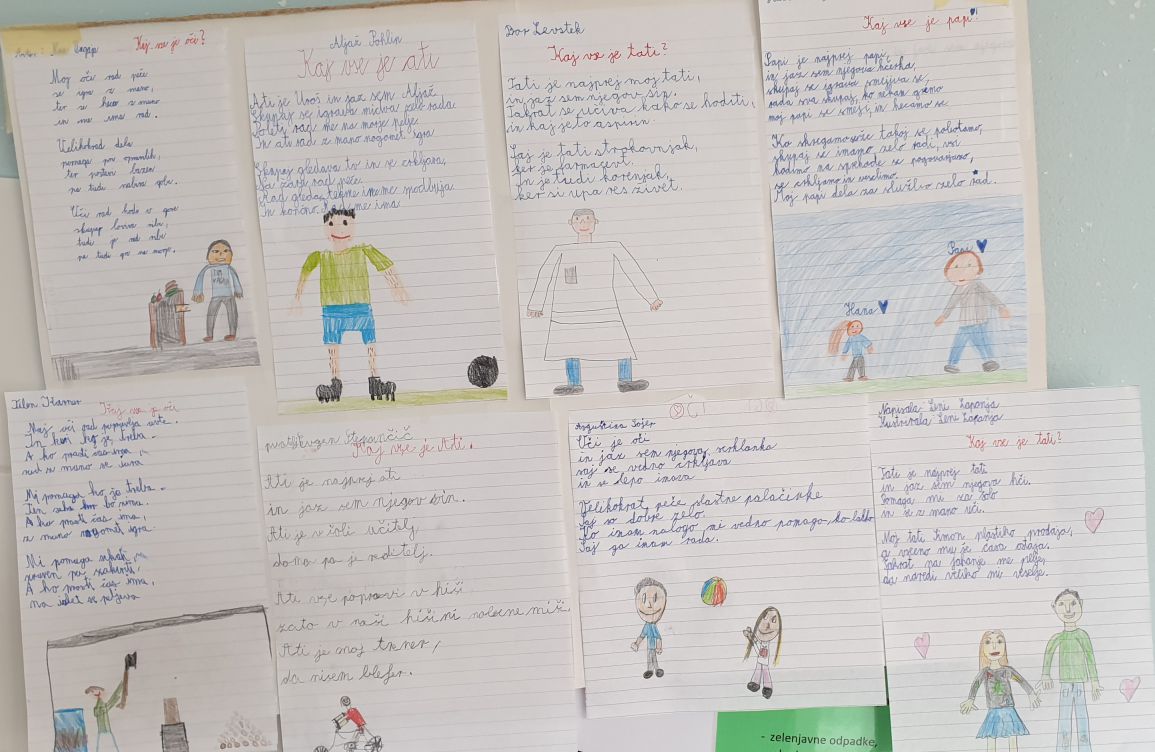 Kaj vse je oči?
Moj oči rad peče
se igra z mano,
ter se heca z mano
in me ima rad.
Velikokrat dela
pomaga pri
ter potem
pa tudi
Oči rad hodi v gore
skupaj loviva ribe,
tudi je rad ribe
pa tudi gre na morje.
Aljaž Pohlin
Kaj vse je ati
Ati je Uroš in jaz sem Aljaž
Skupaj se igrava midva zelo rada
Poleti rad me na morje pelje
In ati rad z mano nogomet igra
Skupaj gledava tv in se crkljava,
Na žaru rad peče
Kaj gleda tekme in me spodbuja
in konono. Rad me ima
Bor Levstek
Kaj vse je tati?
Tati je najprej moj tati,
in jaz sem njegov sin.
Takrat se učiva kako se hoditi,
in kaj je to aspirin.
Saj je tati strokovnjak,
ker je farmacevt.
In je tudi korenjak,
ker si upa res živet.
Kaj vse je papi?
Papi je najprej papi,
in jaz sem njegova hčerka,
skupaj se igrava smejiva se,
rada sva skupaj, ko nekam gremo
moj papi se smeji, in hecamo se
Ko skregamo se že takoj se pobotamo,
skupaj se imamo zelo radi, vsi
hodimo na sprehode se pogovarjamo,
se crkljamo in veselimo.
Moj papi dela za službo zelo rad.
Papi
Hana
Tilen Kramer
Kaj vse je oči
Naj oči rad popravlja avte.
In kosi kog je treba.
A ko pradi čas ima,
rad z mano se
Mi pomaga ko je treba.
A ko prosti čas ima,
z mano nogomet igra
Mi pomaga
A ko prosti čas ima,
na izlet se peljeva
Evgen Stepančič
Kaj vse je Ati.
Ati je najprej ati
in jaz sem njegov sin.
Ati je v šoli učitelj
doma pa je roditelj.
Ati vse popravi v hiši
zato v naši hiši ni nobene miši
Ati je moj trener,
da nisem blefer.
OČI
Avguština Šojer
Oči je oti
in jaz sem njegova crkljanka
saj se vedno crkljava
in se lepo imava
Velikokrat peče slastne palačinke
Saj so dobre zelo.
Ko imam nalogo mi vedno pomaga ko lahko
Saj ga imam rada.
Napisala: Leni Zaponja
Ilustrirala: Leni Zaponja
Kaj vse je tati?
Tati je najprej tati
in jaz sem njegova hči.
Pomaga mi za šolo
in se z mano uči.
Moj tati Simon plastiko prodaja,
a vseeno mu je časa ostaja.
Takrat na jahanje me pelje,
da naredi veliko mi veselje.
- zelenjavne odpadke,